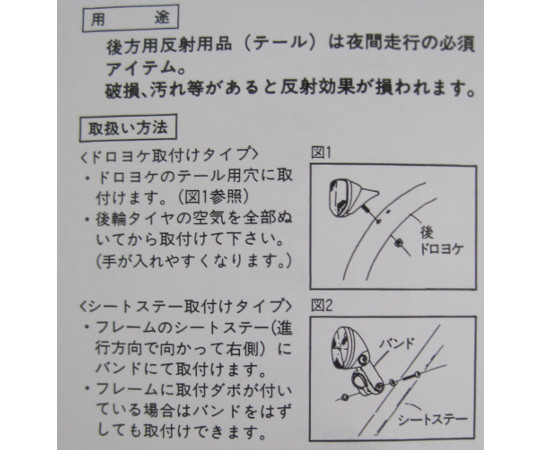 用 途
後方用反射用品（テール）は夜間走行の必須
アイテム。
破損、汚れ等があると反射効果が損われます。
取扱い方法
〈ドロヨケ取付けタイプ〉
・ドロヨケのテール用穴に取
付けます。（図1参照）
・後輪タイヤの空気を全部ぬ
いてから取付けて下さい。
（手が入れやすくなります。）
図1
後
ドロヨケ
〈シートステー取付けタイプ〉
・フレームのシートステー（進
行方向で向かって右側）に
バンドにて取付けます。
・フレームに取付ダボが付い
ている場合はバンドをはず
しても取付けできます。
図2
バンド
シートステー